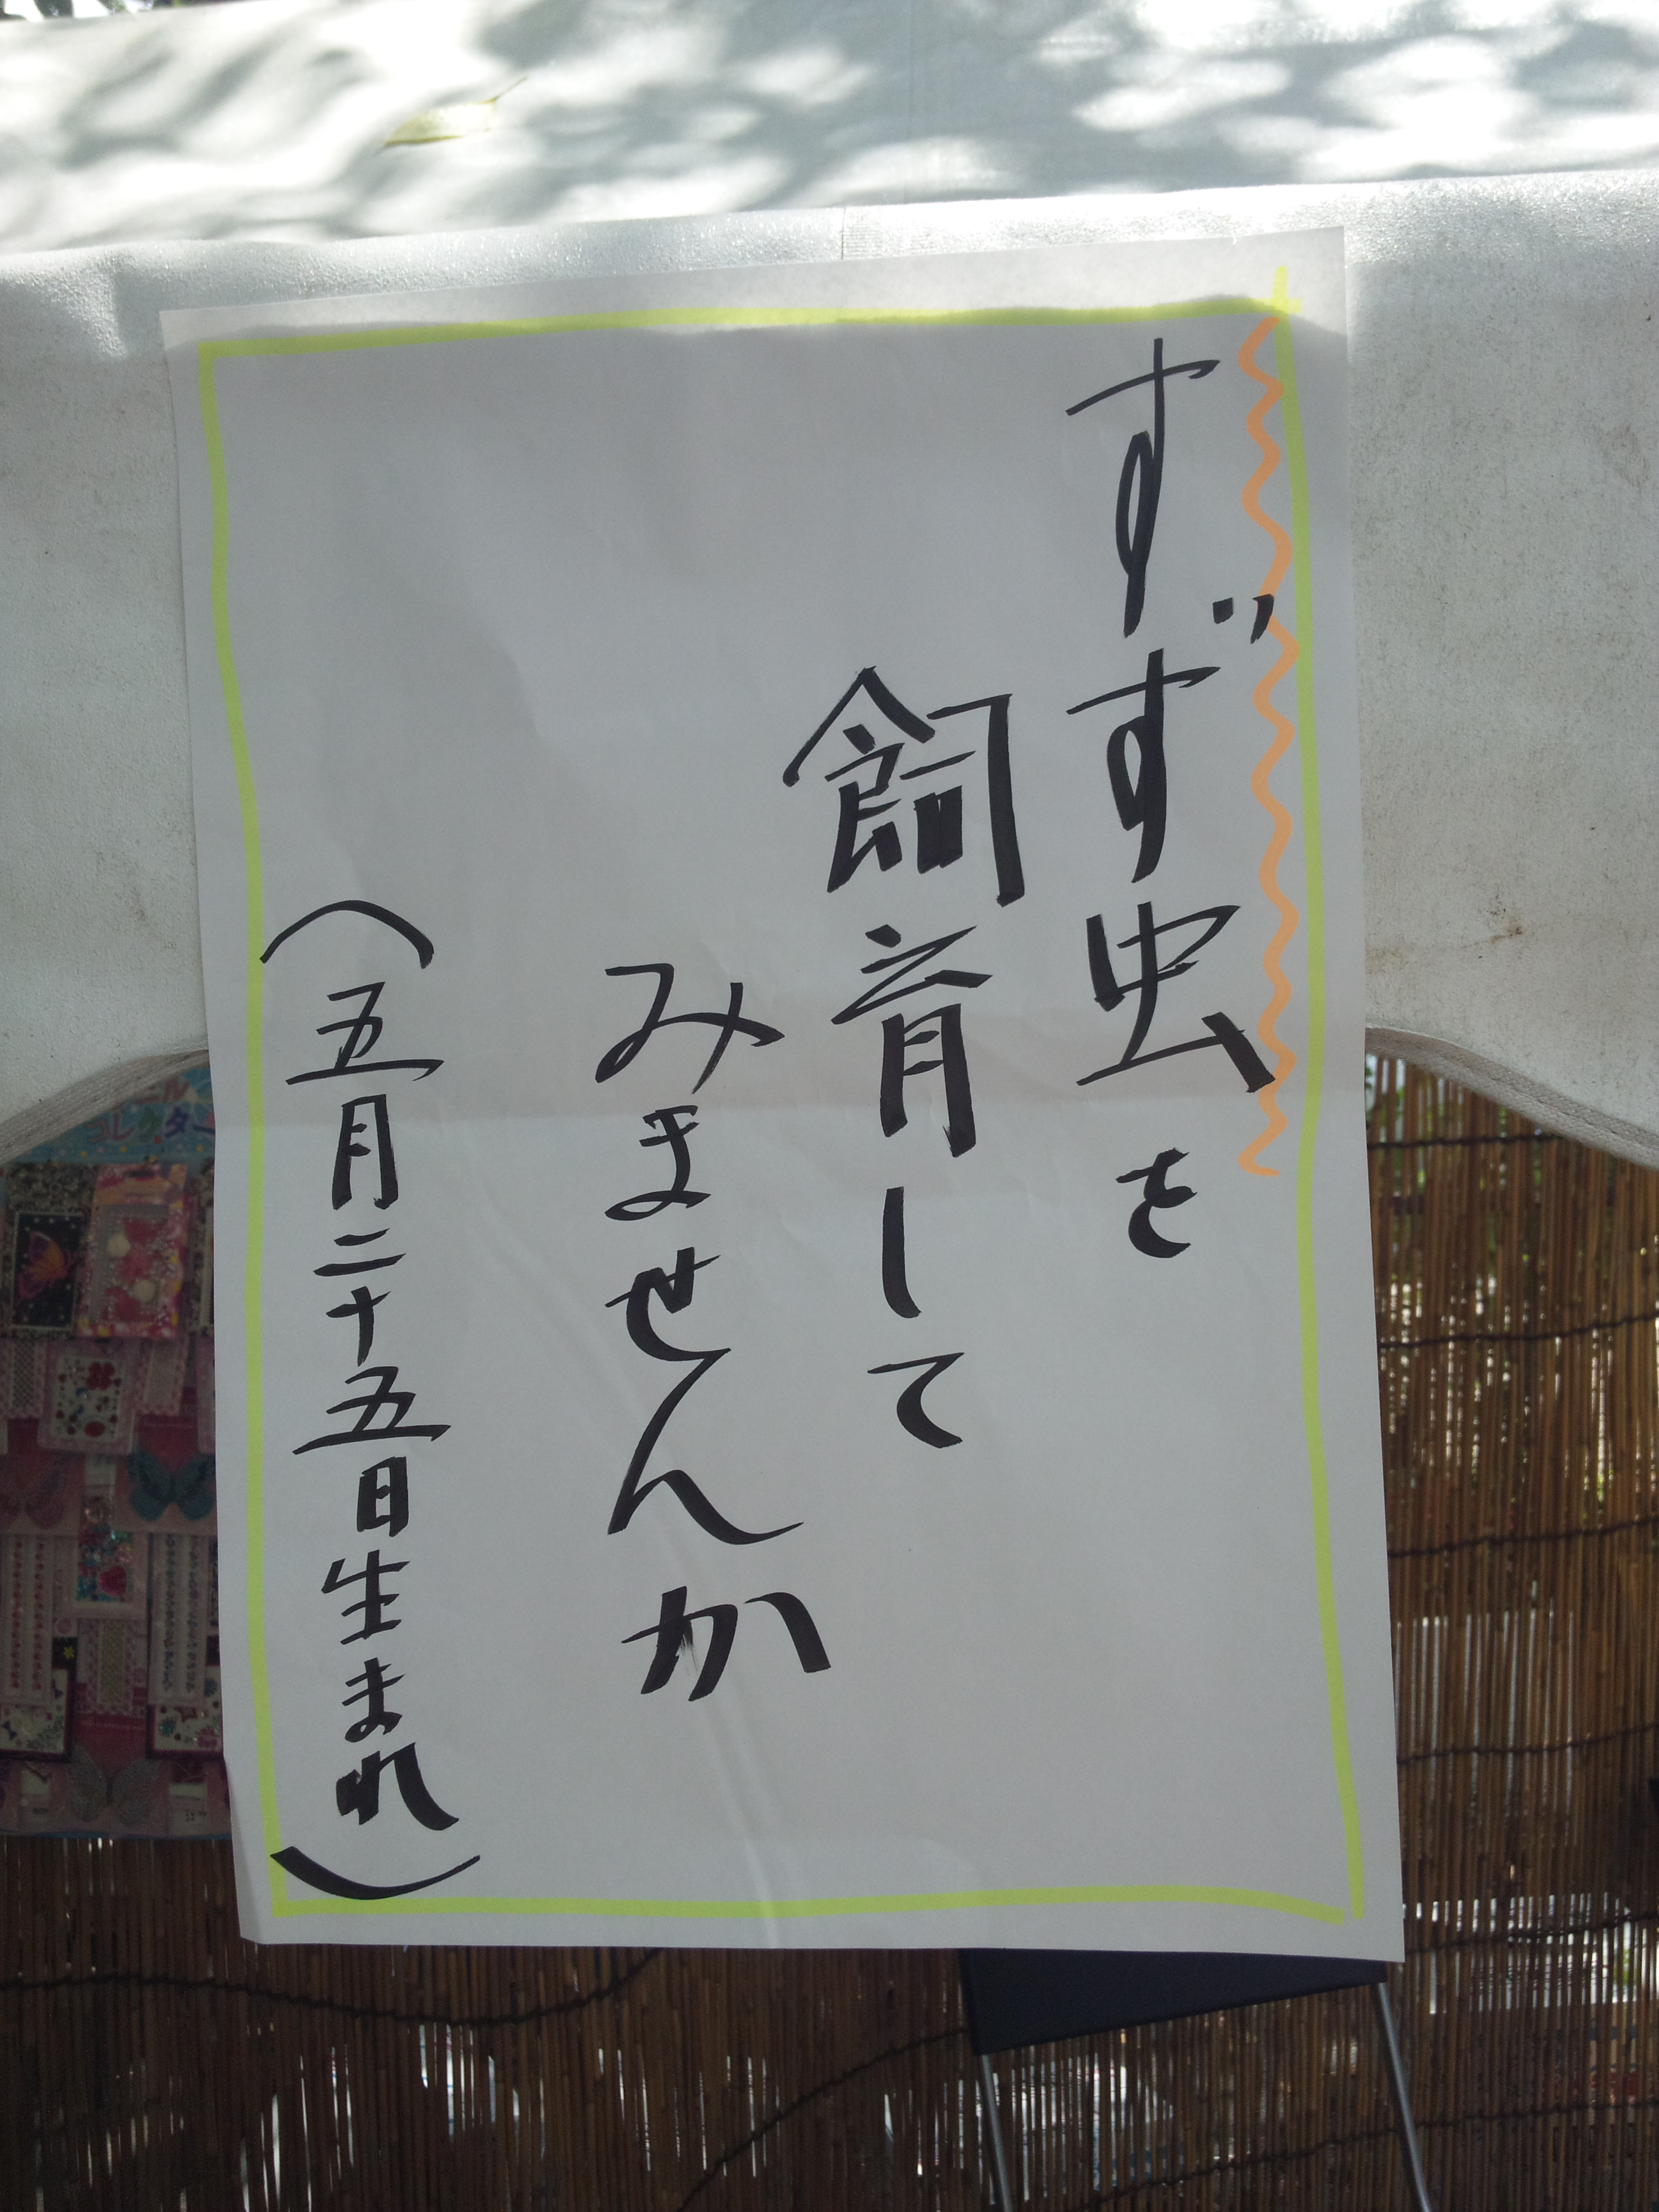 すず虫を
飼育して
みませんか
(五月二十五日生まれ)
コレクター